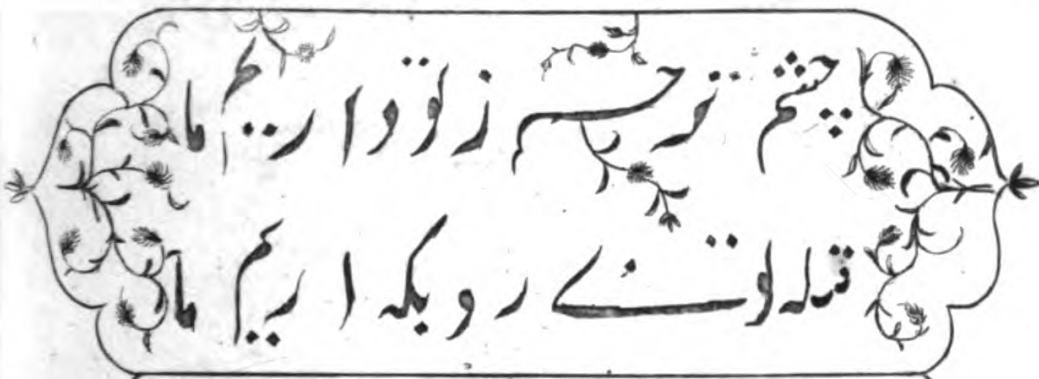 چشم ترحم ز تو داریم ما
قبله توئی رو بکه آریم ما